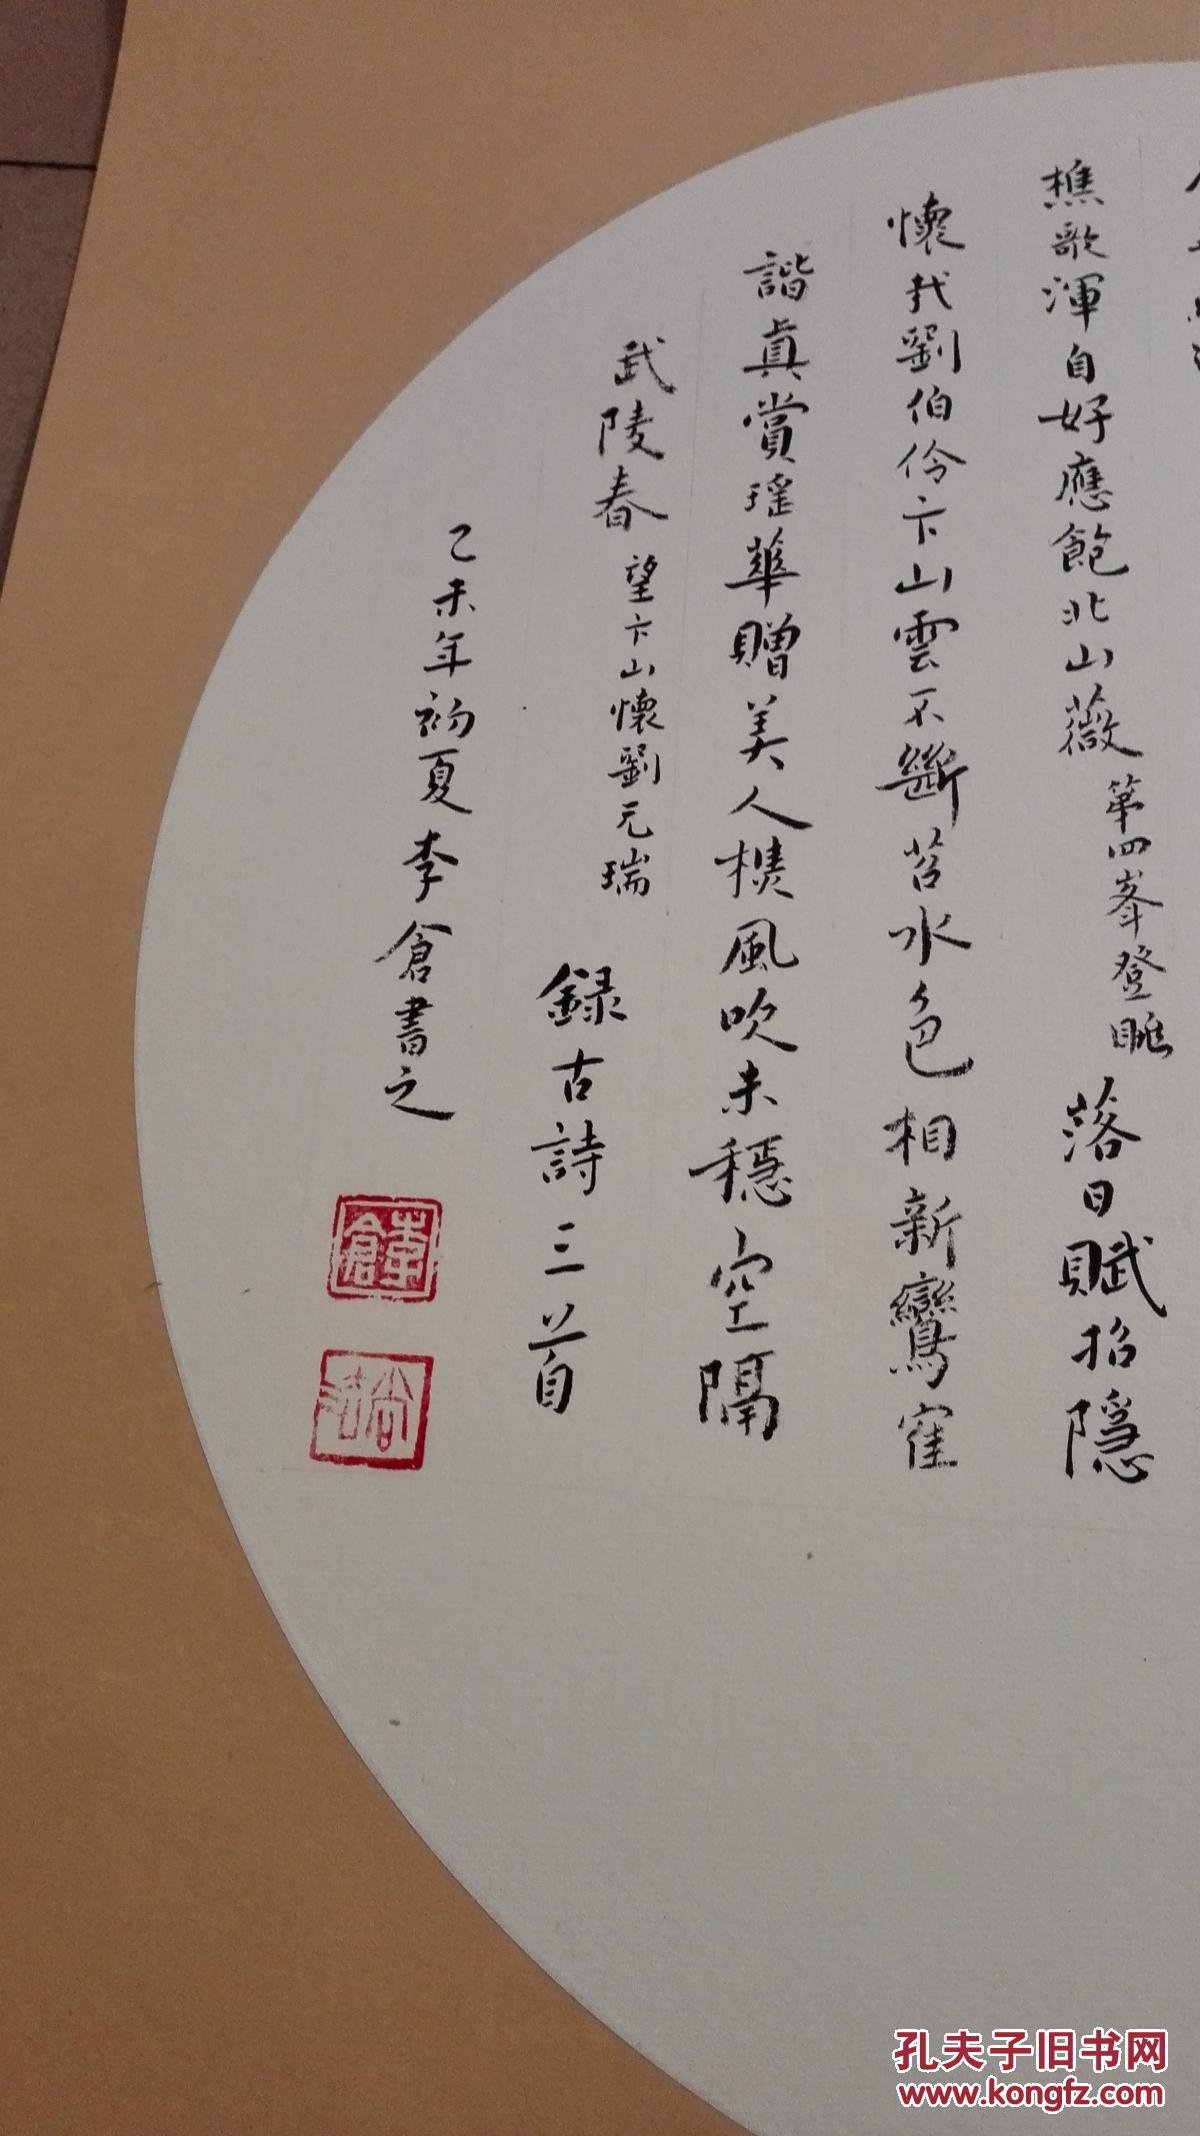 樵歌渾自好應飽北山薇 第四峯登眺 落日賦招隱
懷我劉伯伶卞山雲不斷苕水色相新鸞寉
諧真賞瑤華贈美人樵風吹未穩空隔
武陵春 望卞山懷劉元瑞 録古詩三首
乙未年初夏李倉書之
李倉
孔夫子旧书网
www.kongfz.com